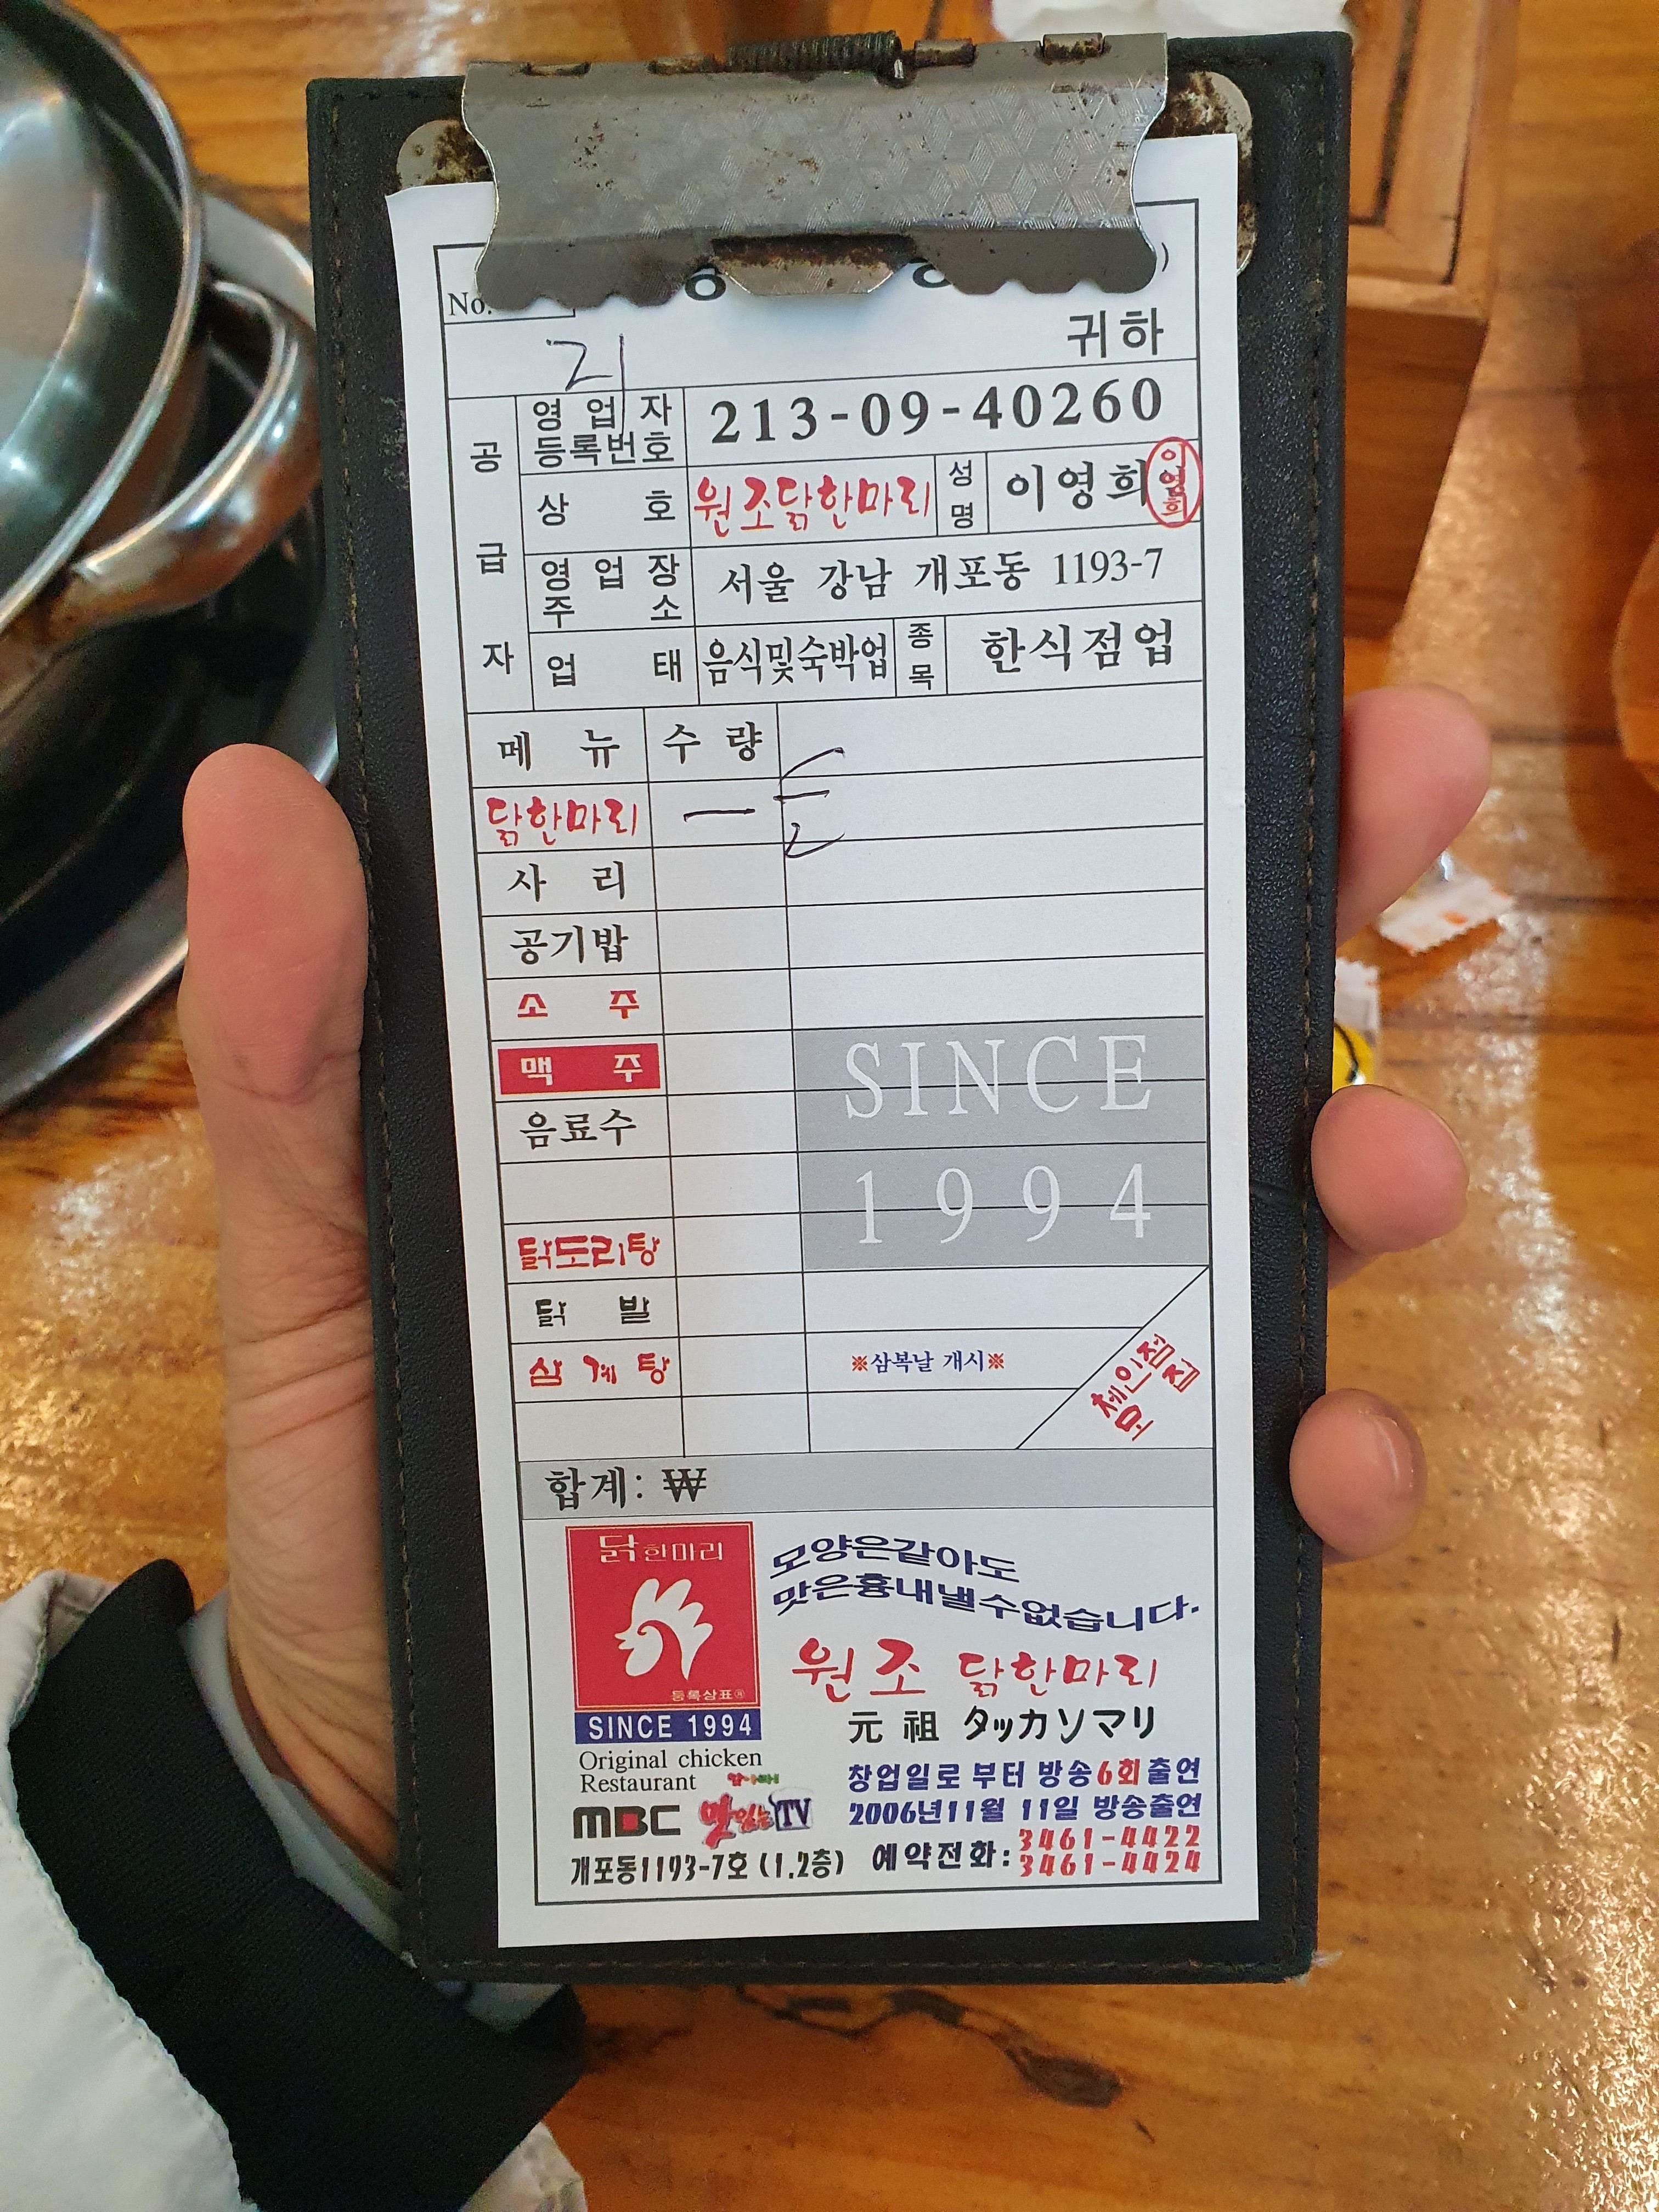 No.
귀하
21
공급자
영업자등록번호 213-09-40260
상호 원조닭한마리 성명 이영희 이영희
영업장주소 서울 강남 개포동 1193-7
업태 음식및숙박업 종목 한식점업
메뉴 수량
닭한마리 一
사리
공기밥
소주
맥주
음료수
SINCE
1994
닭도리탕
닭발
삼계탕 ※삼복날 개시※
체인점
모집
합계: ₩
닭한마리
등록상표®
SINCE 1994
Original chicken
Restaurant
모양은같아도
맛은흉내낼수없습니다.
원조 닭한마리
元祖 タッカソマリ
창업일로 부터 방송6회출연
MBC 맛있는TV
2006년11월 11일 방송출연
개포동1193-7호 (1.2층) 예약전화: 3461-4422
3461-4424